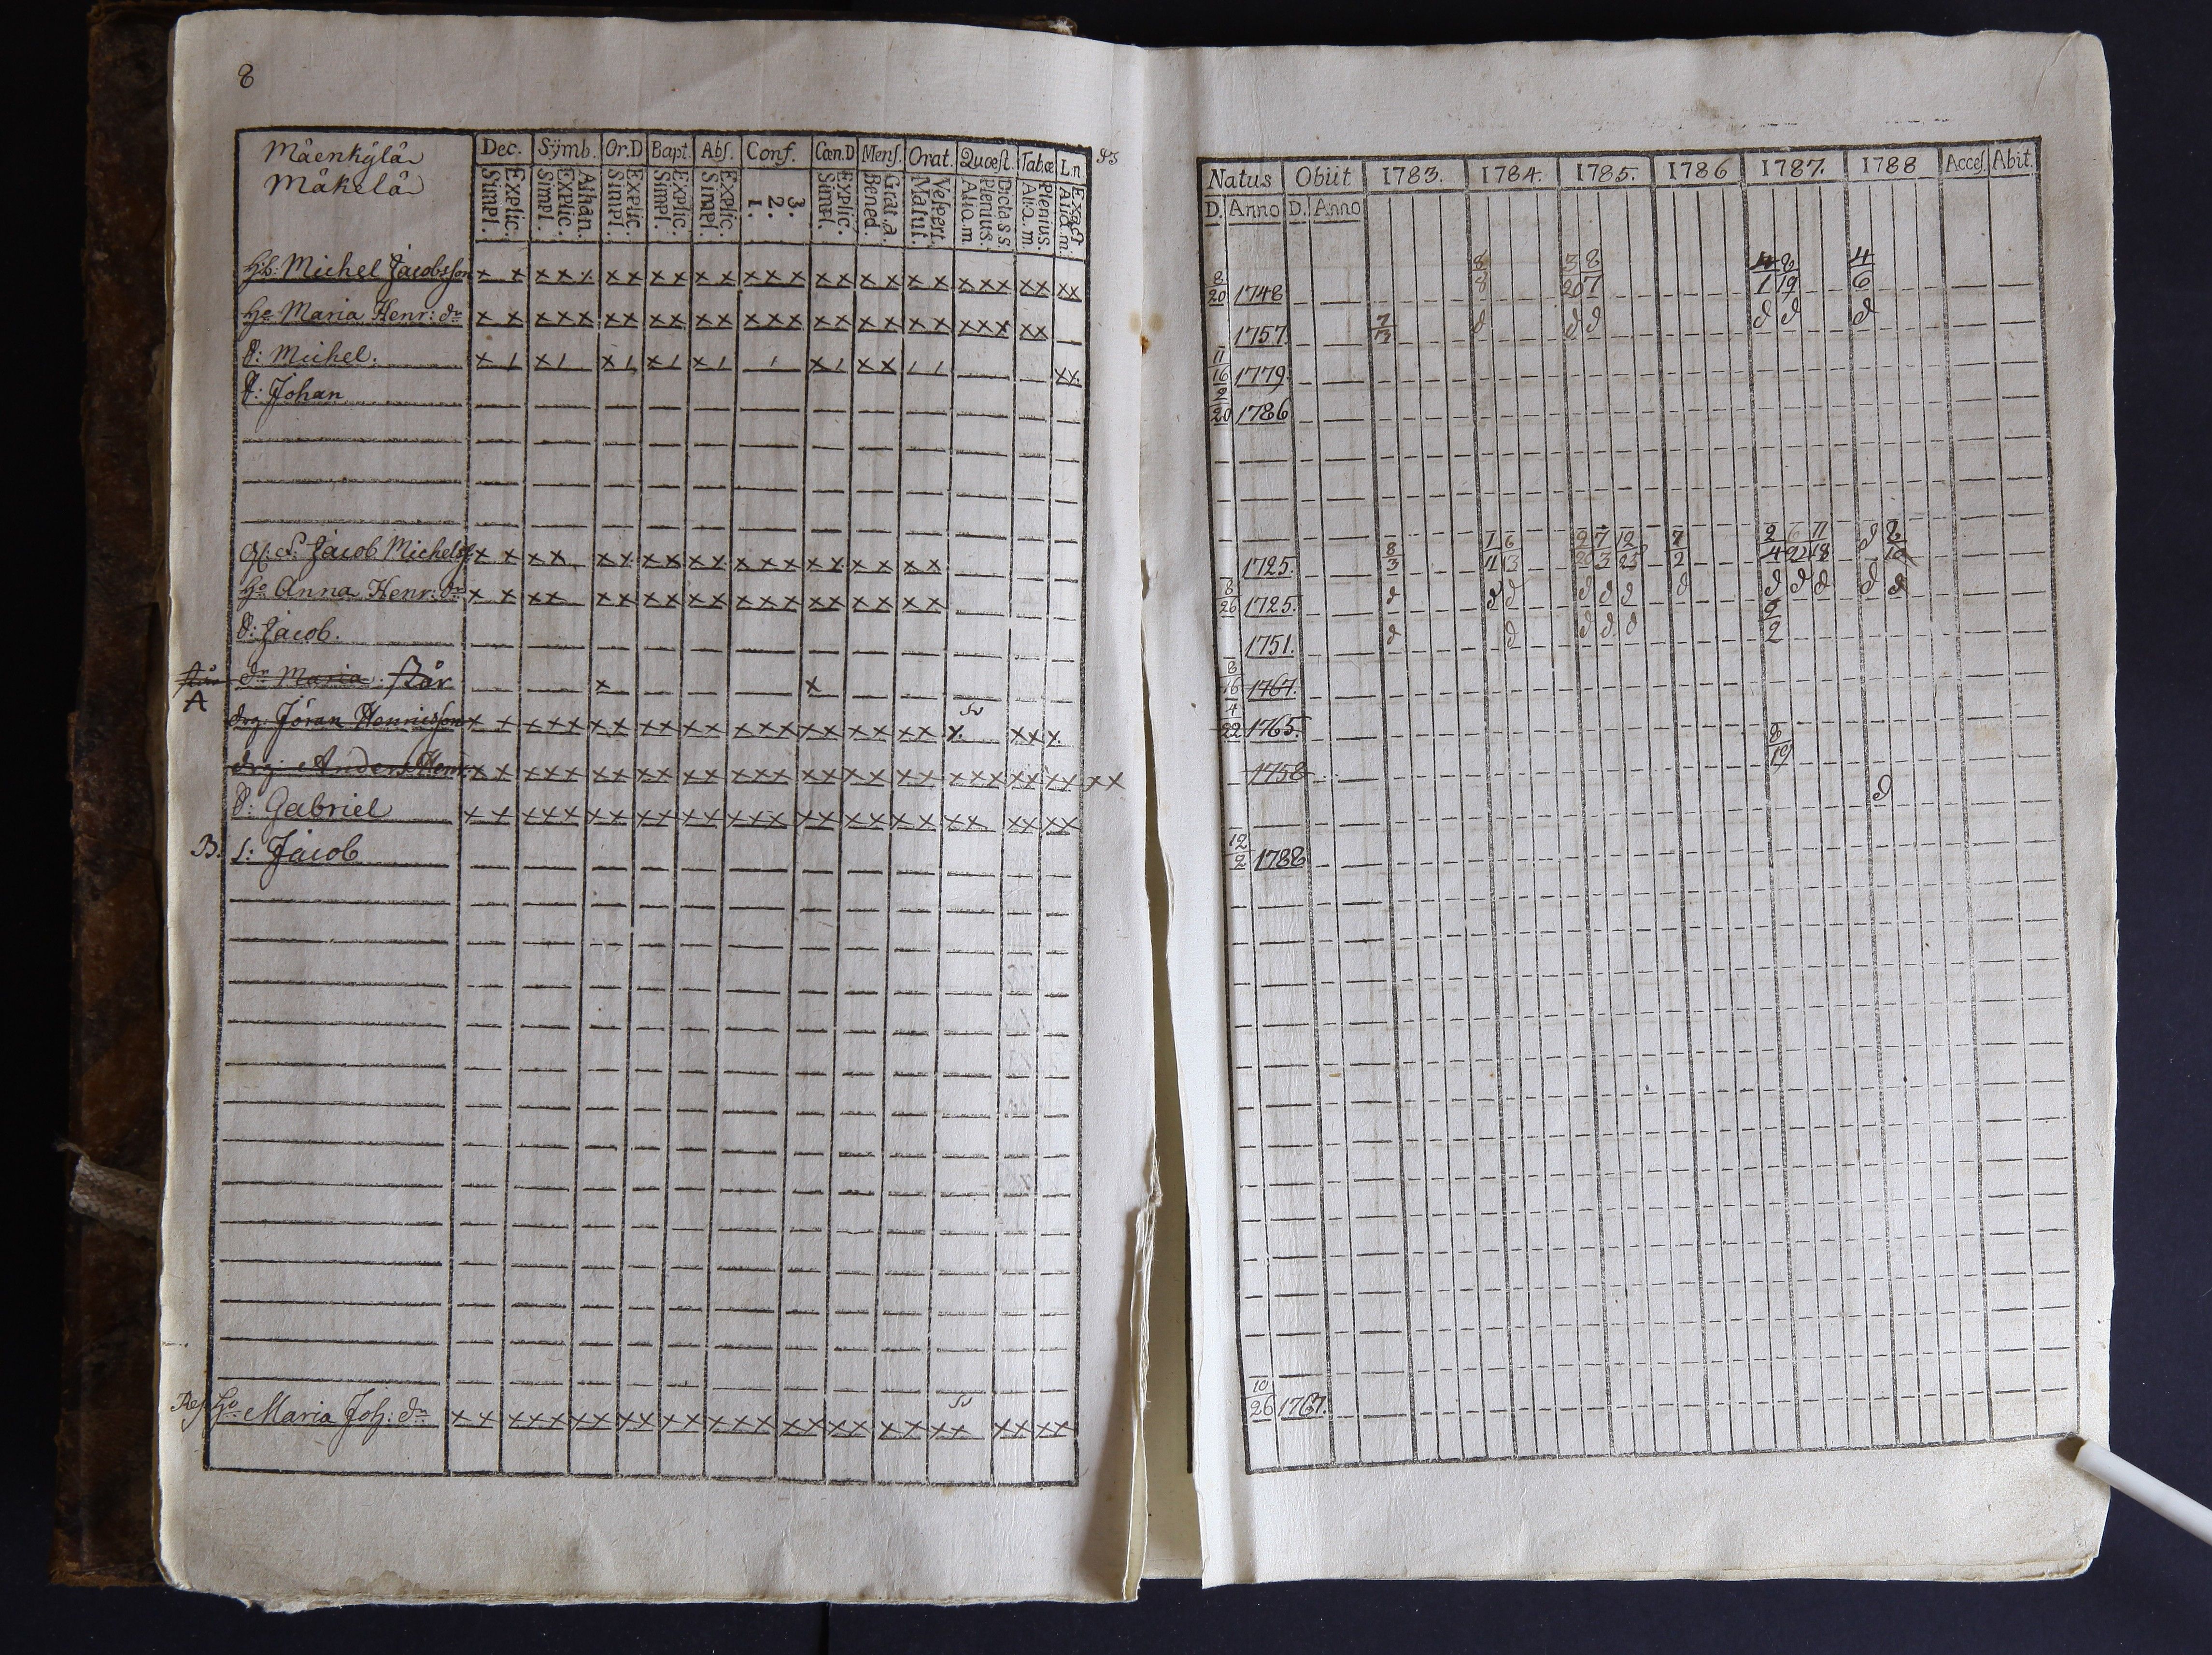 8
Mäenkÿlä
Mäkelä
Dec. Sÿmb. Or.D Bapt. Abs. Conf. Cœn.D Mens. Orat. Quæst. Tabæ L.n
Explic. Simpl. Athan. Explic. Simpl. Explic. Simpl. Explic. Simpl. Explic. Simpl. 3. 2. 1. Explic. Simpl. Grat.a. Bened. Vespert. Matut. Dicta s.s. Plenius. Aliq.m. Plenius. Aliq.m. Exact Aliq.m.
Natus Obiit 1783. 1784. 1785. 1786 1787. 1788 Acces. Abit.
D. Anno D. Anno
Hb: Michel Jacobsson x x x x x x x x x x x x x x x x x x x x x x x x x x 8/20 1748 8/8 3/20 8/7 4/1 8/19 4/6
Hu Maria Henr: dr x x x x x x x x x x x x x x x x x x x x x x x x 1757 7/3 d d d d d d
S: Michel. x / x / x / x / x / / x / x x / / x x 11/16 1779
S: Johan 2/20 1786
S: Jacob Michelss x x x x x x x x x x x x x x x x x x x 1725. 8/3 1/1 6/3 7/3 12/25 7/2 2/4 6/22 11/18 d 8/10
Hu Anna Henr: dr x x x x x x x x x x x x x x x x x x x 8/26 1725. d d d d d d d d d d d d
S: Jacob. 1751. d d d d d 9/2
A dr Maria: står x x 8/16 1767.
drg: Jöran Henricsson x x x x x x x x x x x x x x x x x x x x x x x x 4/22 1765.
drg: Anders Henr. x x x x x x x x x x x x x x x x x x x x x x x x x x x x 1758 8/19
S: Gabriel x x x x x x x x x x x x x x x x x x x x x x x x x d
B. S: Jacob 12/2 1788
Hu Maria Joh: dr x x x x x x x x x x x x x x x x x x x x x x x x x 10/26 1767.